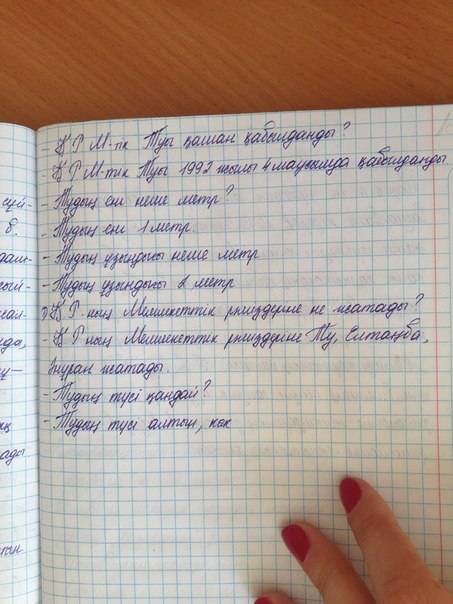 - Қ Р М-тік Туы қашан қабылданды?
Қ Р М-тік Туы 1992 жылы 4 маусымда қабылданды
- Тудың ені неше метр?
- Тудың ені 1 метр.
- Тудың ұзындығы неше метр
- Тудың ұзындығы 2 метр
Қ Р-ның Мемлекеттік рәміздеріне не жатады?
- Қ Р ның Мемлекеттік рәміздеріне Ту, Елтаңба,
Әнұран жатады.
- Тудың түсі қандай?
- Тудың түсі алтын, көк